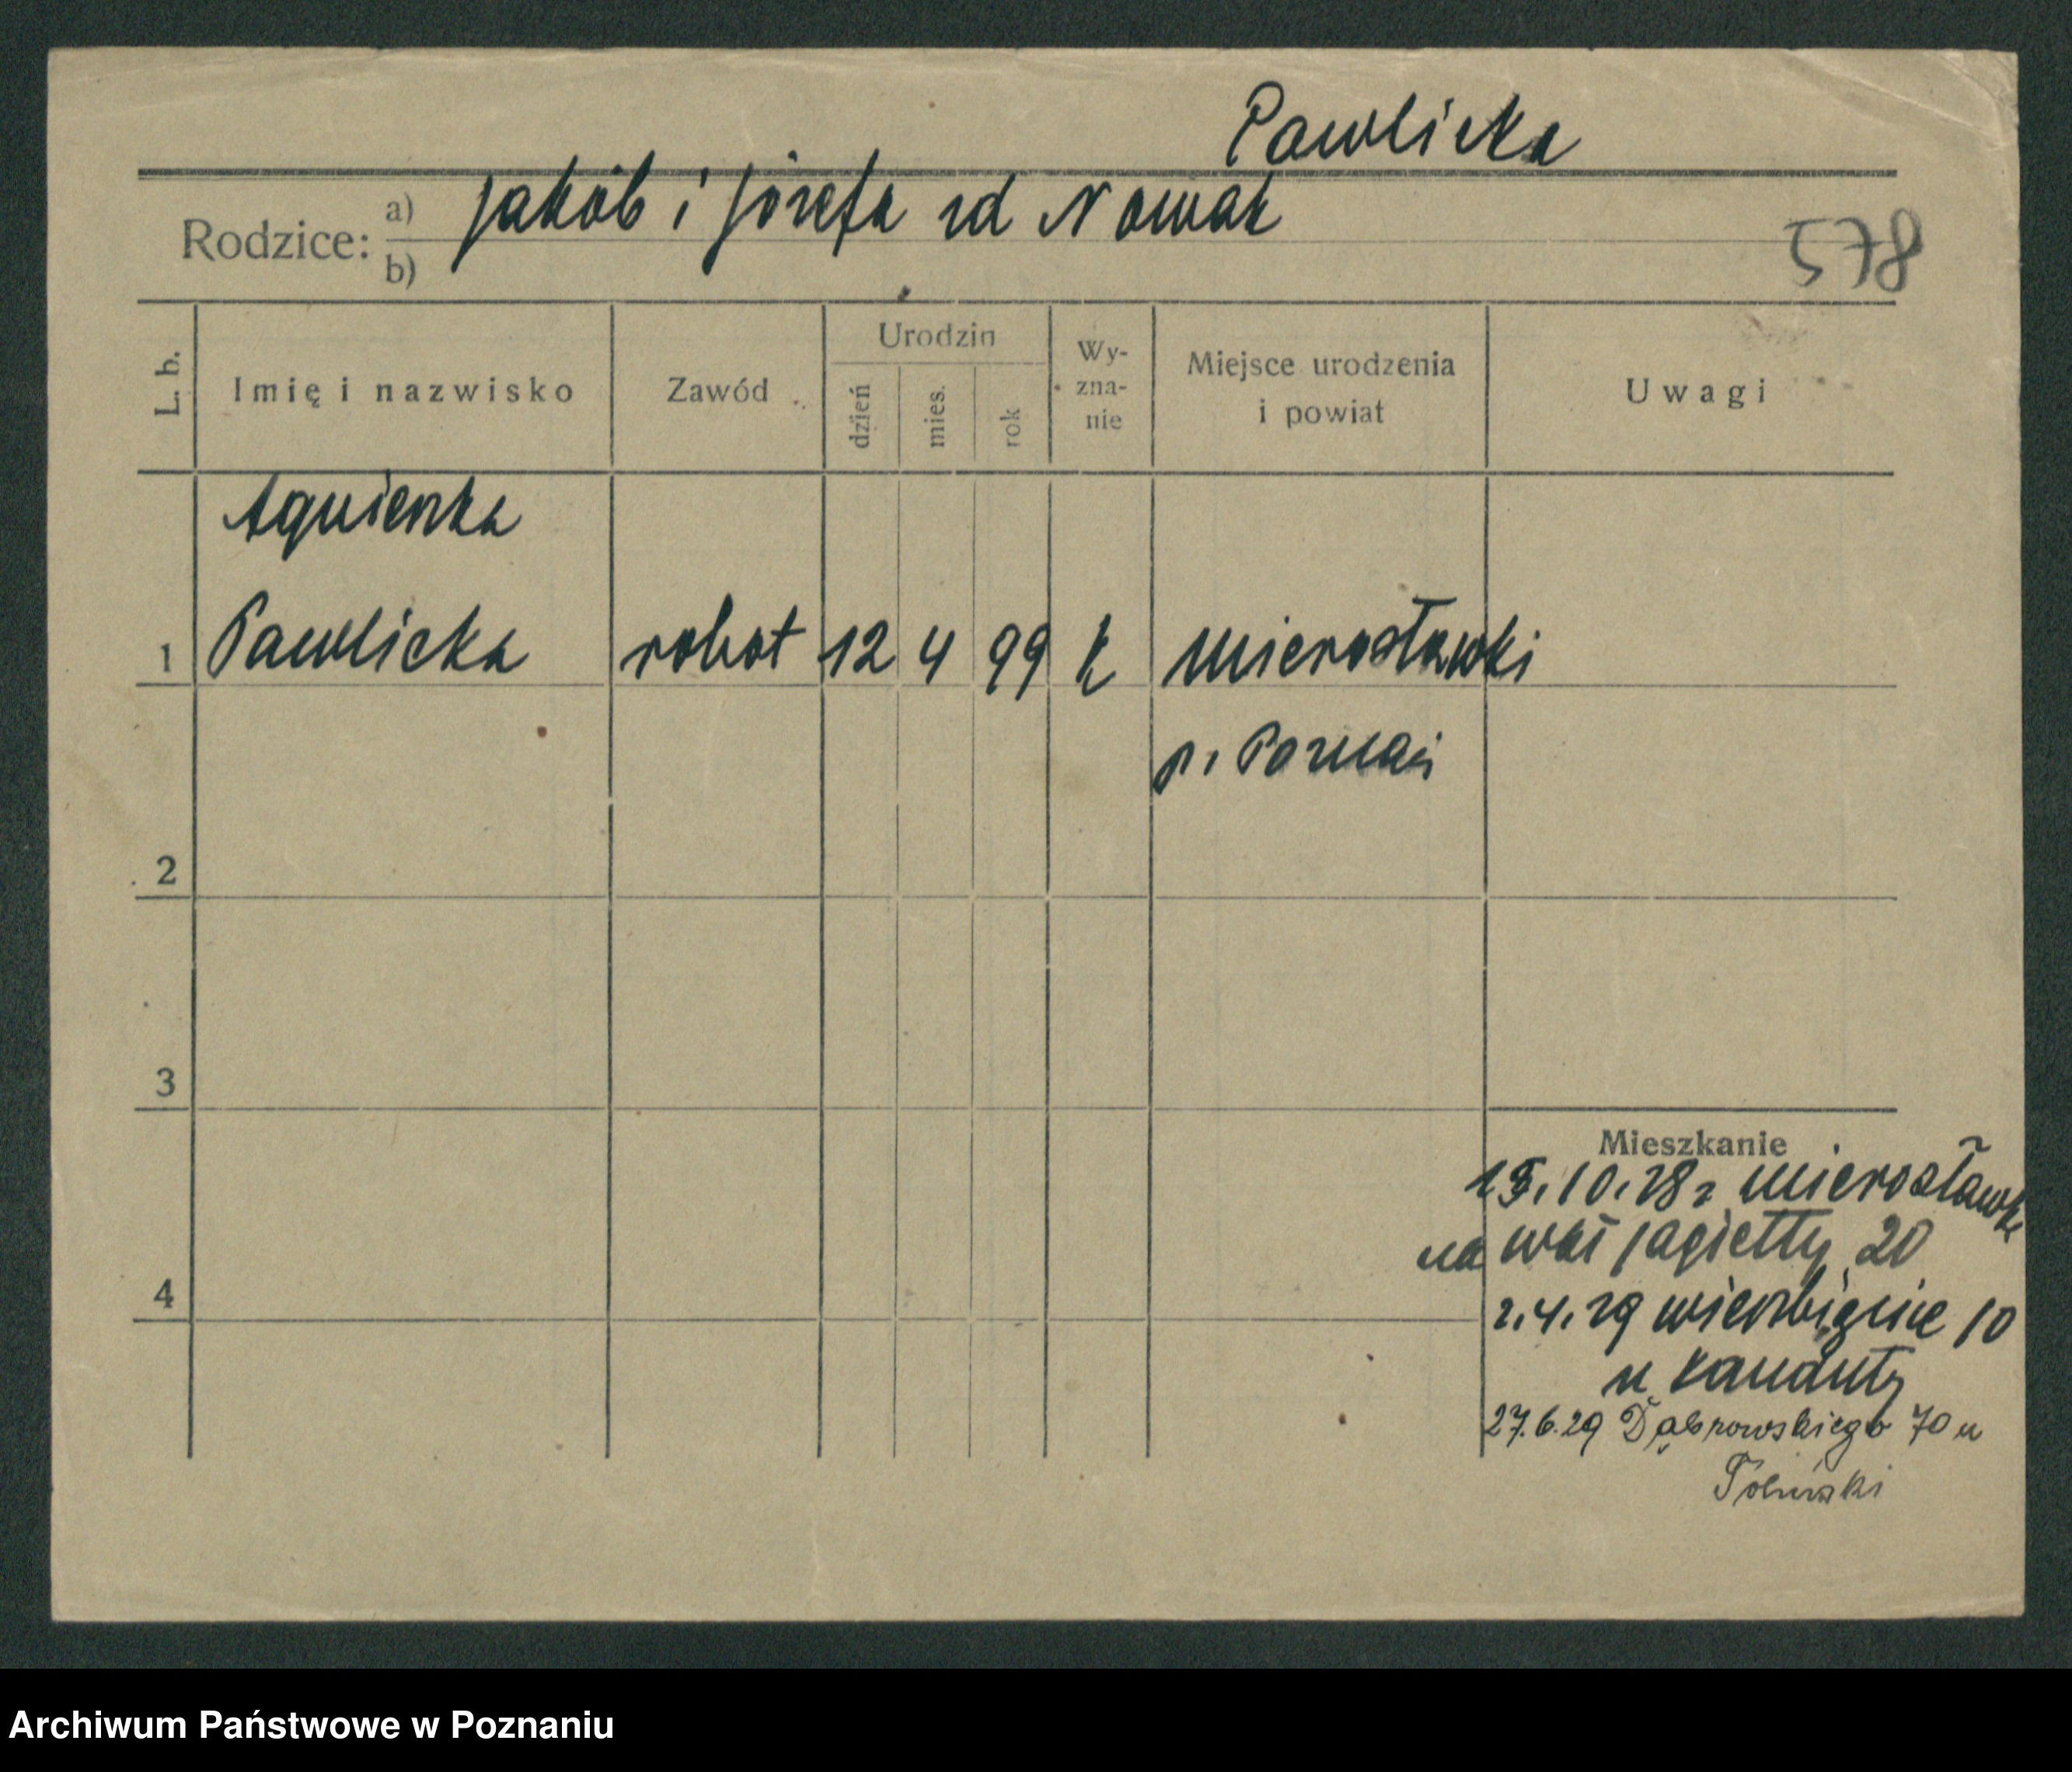 Pawlicka
Rodzice: a) Jakób i Józefa zd Nowak
b)
578
L. b.
Imię i nazwisko
Zawód
Urodzin
dzień
mies.
rok
Wy-
zna-
nie
Miejsce urodzenia
i powiat
Uwagi
Agnieszka
1 Pawlicka robot 12 4 99 k Mierosławki
p. Poznań
2
3
4
Mieszkanie
15.10.28 z Mierosławki
na Wał Jagiełły 20
2.4.29 Wierzbięcice 10
u Kanduły
27.6.29 Dąbrowskiego 70 u
Archiwum Państwowe w Poznaniu